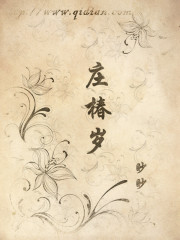 p://www.qidian.com
庄椿岁
眇眇